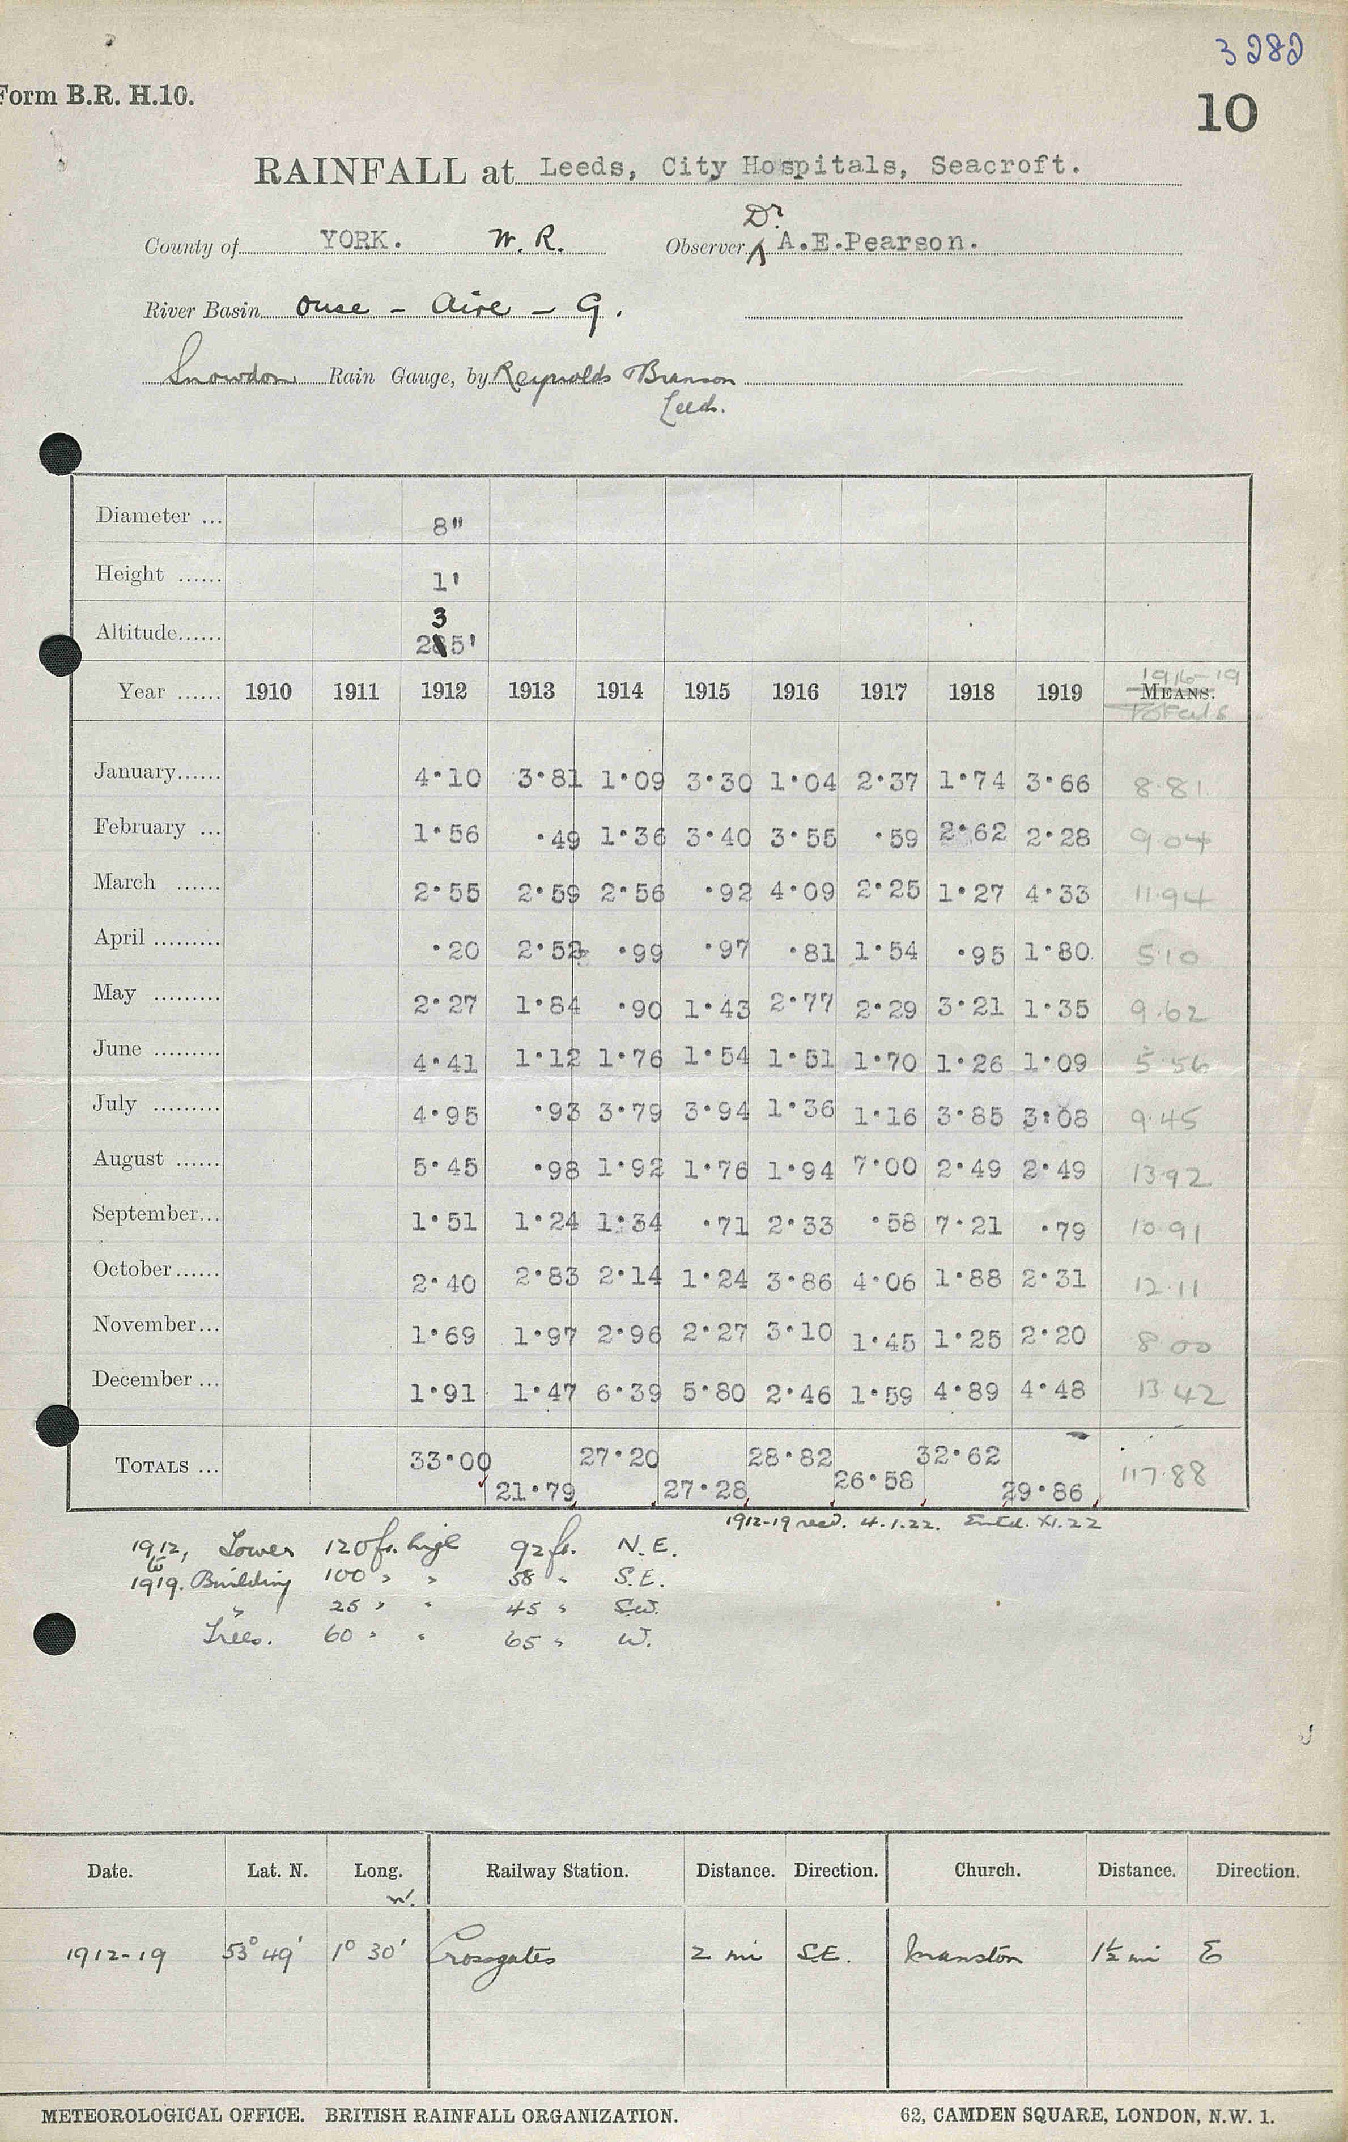 3282
Form B.R. H.10.
10
RAINFALL at Leeds, City Hospitals, Seacroft.
County of YORK. W. R. Observer Dr. A.E.Pearson.
River Basin Ouse - Aire - G.
Snowdon Rain Gauge, by Reynolds & Branson
Leeds.
Diameter ... 8"
Height ...... 1'
3
Altitude...... 285'
Year ...... 1910 1911 1912 1913 1914 1915 1916 1917 1918 1919 MEANS. 1916-19
Totals
January...... 4.10 3.81 1.09 3.30 1.04 2.37 1.74 3.66 8.81
February ... 1.56 .49 1.36 3.40 3.55 .59 2.62 2.28 9.04
March ...... 2.55 2.59 2.56 .92 4.09 2.25 1.27 4.33 11.94
April ......... .20 2.52 .99 .97 .81 1.54 .95 1.80 5.10
May ......... 2.27 1.84 .90 1.43 2.77 2.29 3.21 1.35 9.62
June ......... 4.41 1.12 1.76 1.54 1.51 1.70 1.26 1.09 5.56
July ......... 4.95 .93 3.79 3.94 1.36 1.16 3.85 3.08 9.45
August ...... 5.45 .98 1.92 1.76 1.94 7.00 2.49 2.49 13.92
September... 1.51 1.24 1.34 .71 2.33 .58 7.21 .79 10.91
October...... 2.40 2.83 2.14 1.24 3.86 4.06 1.88 2.31 12.11
November... 1.69 1.97 2.96 2.27 3.10 1.45 1.25 2.20 8.00
December ... 1.91 1.47 6.39 5.80 2.46 1.59 4.89 4.48 13.42
TOTALS ... 33.00 21.79 27.20 27.28 28.82 26.58 32.62 29.86 117.88
1912-19 recd. 4.1.22. Entd. XI.22
1912, Tower 120 ft. high 92 ft. N.E.
to
1919. Building 100 " " 58 " S.E.
" 25 " " 45 " S.W.
Trees. 60 " " 65 " W.
Date. Lat. N. Long. W. Railway Station. Distance. Direction. Church. Distance. Direction.
1912-19 53° 49' 1° 30' Crossgates 2 mi S.E. Manston 1½ mi E
METEOROLOGICAL OFFICE. BRITISH RAINFALL ORGANIZATION. 62, CAMDEN SQUARE, LONDON, N.W. 1.